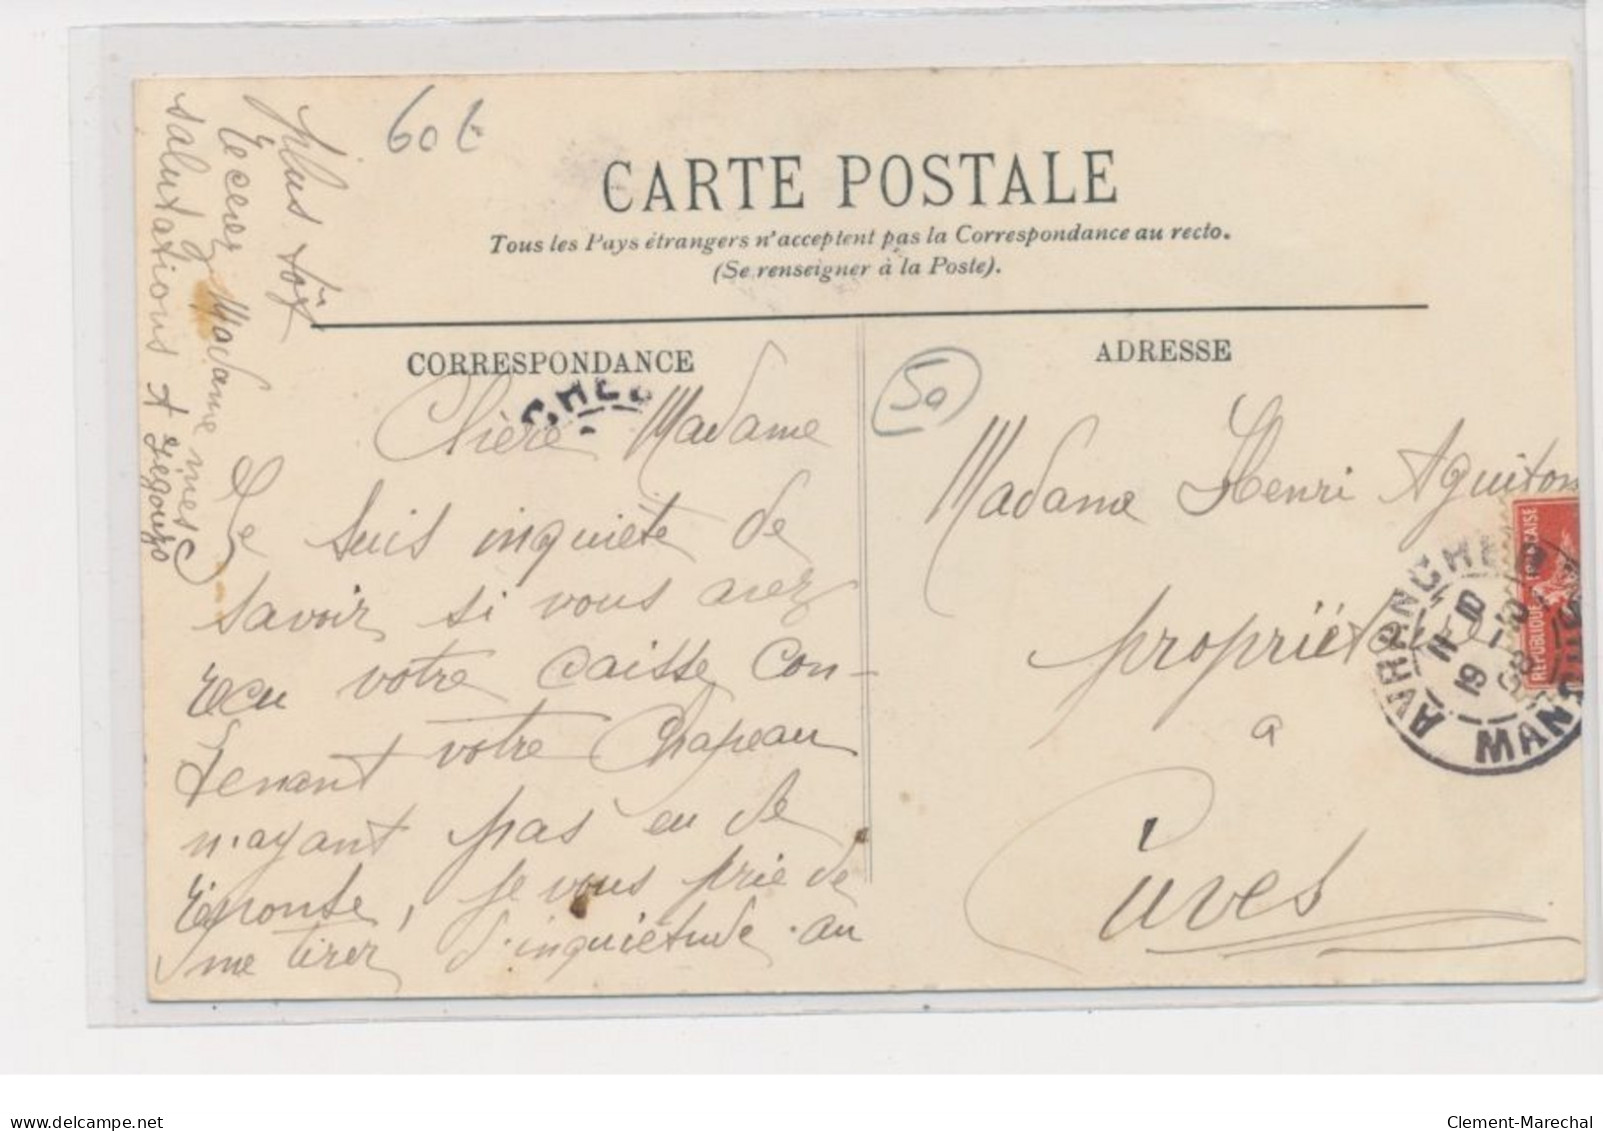 60 €
CARTE POSTALE
Tous les Pays étrangers n'acceptent pas la Correspondance au recto.
(Se renseigner à la Poste).
CORRESPONDANCE
ADRESSE
Chère Madame
Je suis inquiète de
savoir si vous avez
recu votre caisse con-
tenant votre Chapeau
n'ayant pas eu de
réponse, je vous prie de
me tirer d'inquiétude au
plus tôt
Recevez Madame mes
salutations
50
Madame Henri Aguiton
propriétaire
a
Cuves
AVRANCHES
MANCHE
REPUBLIQUE FRANÇAISE
delcampe.net
Clement-Marechal